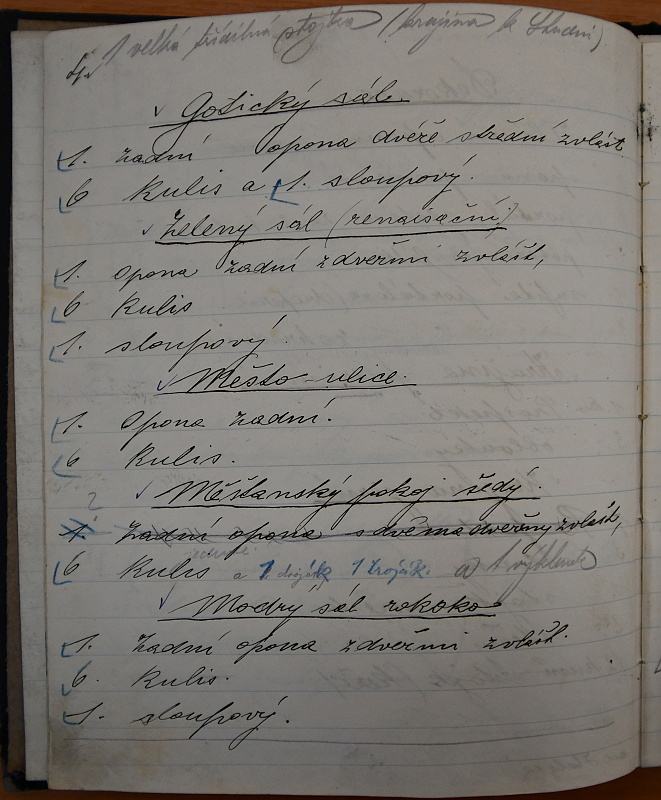 4. 1 velká třídílná stojka (krajina ke studni)
Gotický sál.
1. zadní opona dvéře střední zvlášt
6 Kulis a 1. sloupový.
Zelený sál (renaisační)
1. opona zadní zdveřmi zvlášt,
6 Kulis
1. sloupový.
Město-ulice.
1. Opona zadní.
6 Kulis.
?
Měšťanský pokoj šedý.
1. Zadní opona sdvěmadveřmy zvlášt,
6 Kulis a 1. dioják 1 troják. a 1 výklenek
Modrý sál rokoko
1. Zadní opona zdveřmi zvlášt.
6. Kulis.
1. sloupový.